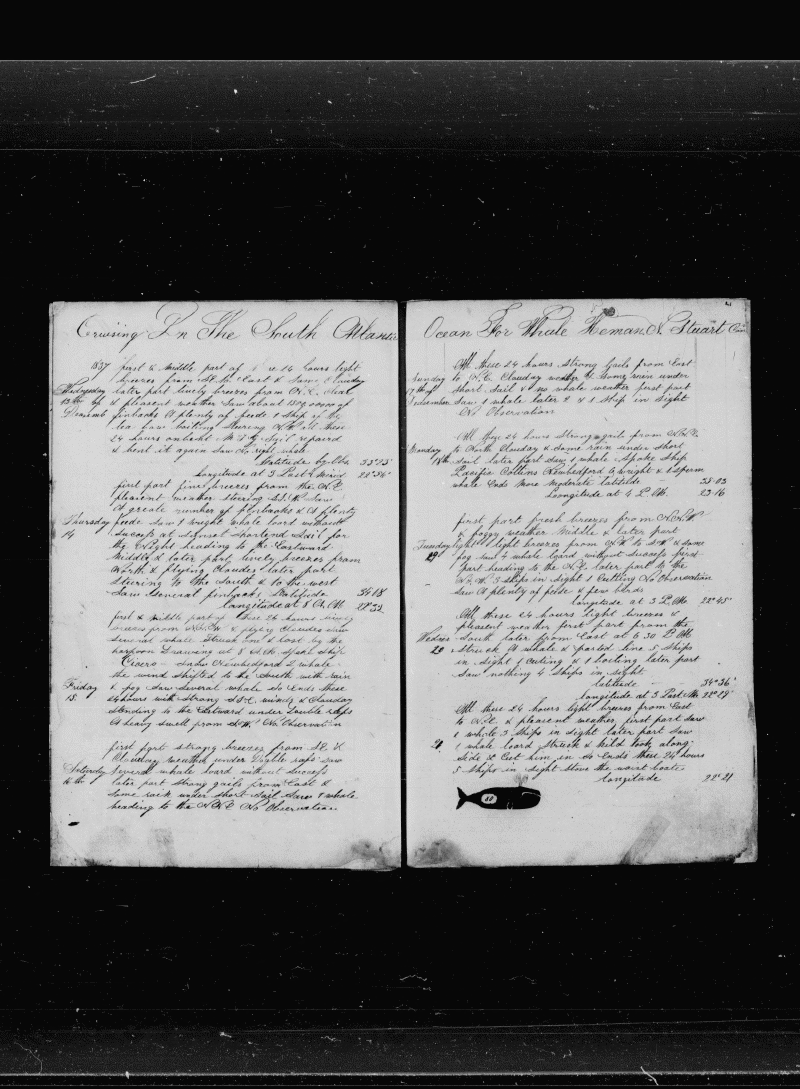 Cruising In The South Atlantic
1837 first & middle part of 24 hours light
breezes from & East & Some Cloudy
Wednesday later part lively breezes from N.E. Clear
13th of & pleasent weather Saw about 1500 000000 of
Decemb finbacks A plenty of feede 1 Ship of the
lea bow boiling Stearing N.W. All these
24 hours onbent M.T.G. Sail repaired
& bent it again Saw No right whale
Latitude by Obs 33°23
Longitude at 3 Past Merid 20°34
first part fine breezes from the N.E.
pleasent weather Stering S.S.W. Saw
A greate number of finbacks & A plenty
Thursday feede Saw 1 wright whale board without
14 Sucsess at Sunset Shortend Sail for
the Night heading to the Eastward
Middle & later part lively breezes from
North & flying Cloudes later part
Steering to the South & to the west
Saw Several finbacks Latitude 34 18
Longitude at 8 A.M. 22°32
first & middle part of these 24 hours
breezes from & flying Cloudes Saw
Several whale Struck one & lost by the
harpoon Drawing at 8 A.M. Spoke Ship
Cicero Newbedford 2 whale
the wind shifted to the South with rain
Friday & fog Saw Several whale So Ends these
15. 24 hours with strong S.E. winds & Cloudy
Standing to the Eastward under Double reefs
A heavy swell from S.W. No Observation
first part strong breezes from S.E. &
Cloudy weather under Double reefs Saw
Saturday Several whale board without sucsess
16th later part Strong gails from East &
Some rain under Short Sail Saw 1 whale
heading to the N.N.E No Observation
Ocean For Whale Heman N. Stuart
21
All these 24 hours Strong Gails from East
Sunday to N.E. Clouday weather & Some rain under
17th of Short Sail & 1 whale weather first part
December Saw 1 whale later 2 & 1 Ship in Sight
No Observation
All these 24 hours Strong gails from N.N.E.
Monday to North Clouday & Some rain under Short
18th Sail later part Saw 1 whale Spoke Ship
Pacific Collins Newbedford 6 wright & 1 Sperm
whale Ends More Moderate Latitude 35 03
Longitude at 4 P.M. 23 16
first part fresh breezes from N.N.W.
& foggy weather Middle & later part
Tuesday light & light breezes from N.W. to S.W. & Some
19 fog Saw 4 whale board without Sucsess first
part heading to the N.E. later part to the
N.N.W. 3 Ships in Sight 1 Cutting No Observation
Saw A plenty of feede & few birds
Longitude at 3 P.Mo 22°45
All these 24 hours light breezes &
pleasent weather first part from the
Wednes South later from East at 6 30 P.M.
20 Struck A whale & parted line 5 Ships
in Sight 1 Cuting & 1 boiling later part
Saw nothing 4 Ships in Sight
Latitude 34°36
Longitude at 3 Past M 22°08
All these 24 hours light breezes from East
to N.E. & pleasent weather first part Saw
1 whale 3 Ships in Sight later part Saw
21 1 whale board Struck & kild took along
Side & Cut him in So Ends these 24 hours
5 Ships in Sight Stove the waist boate
Longitude 22°21